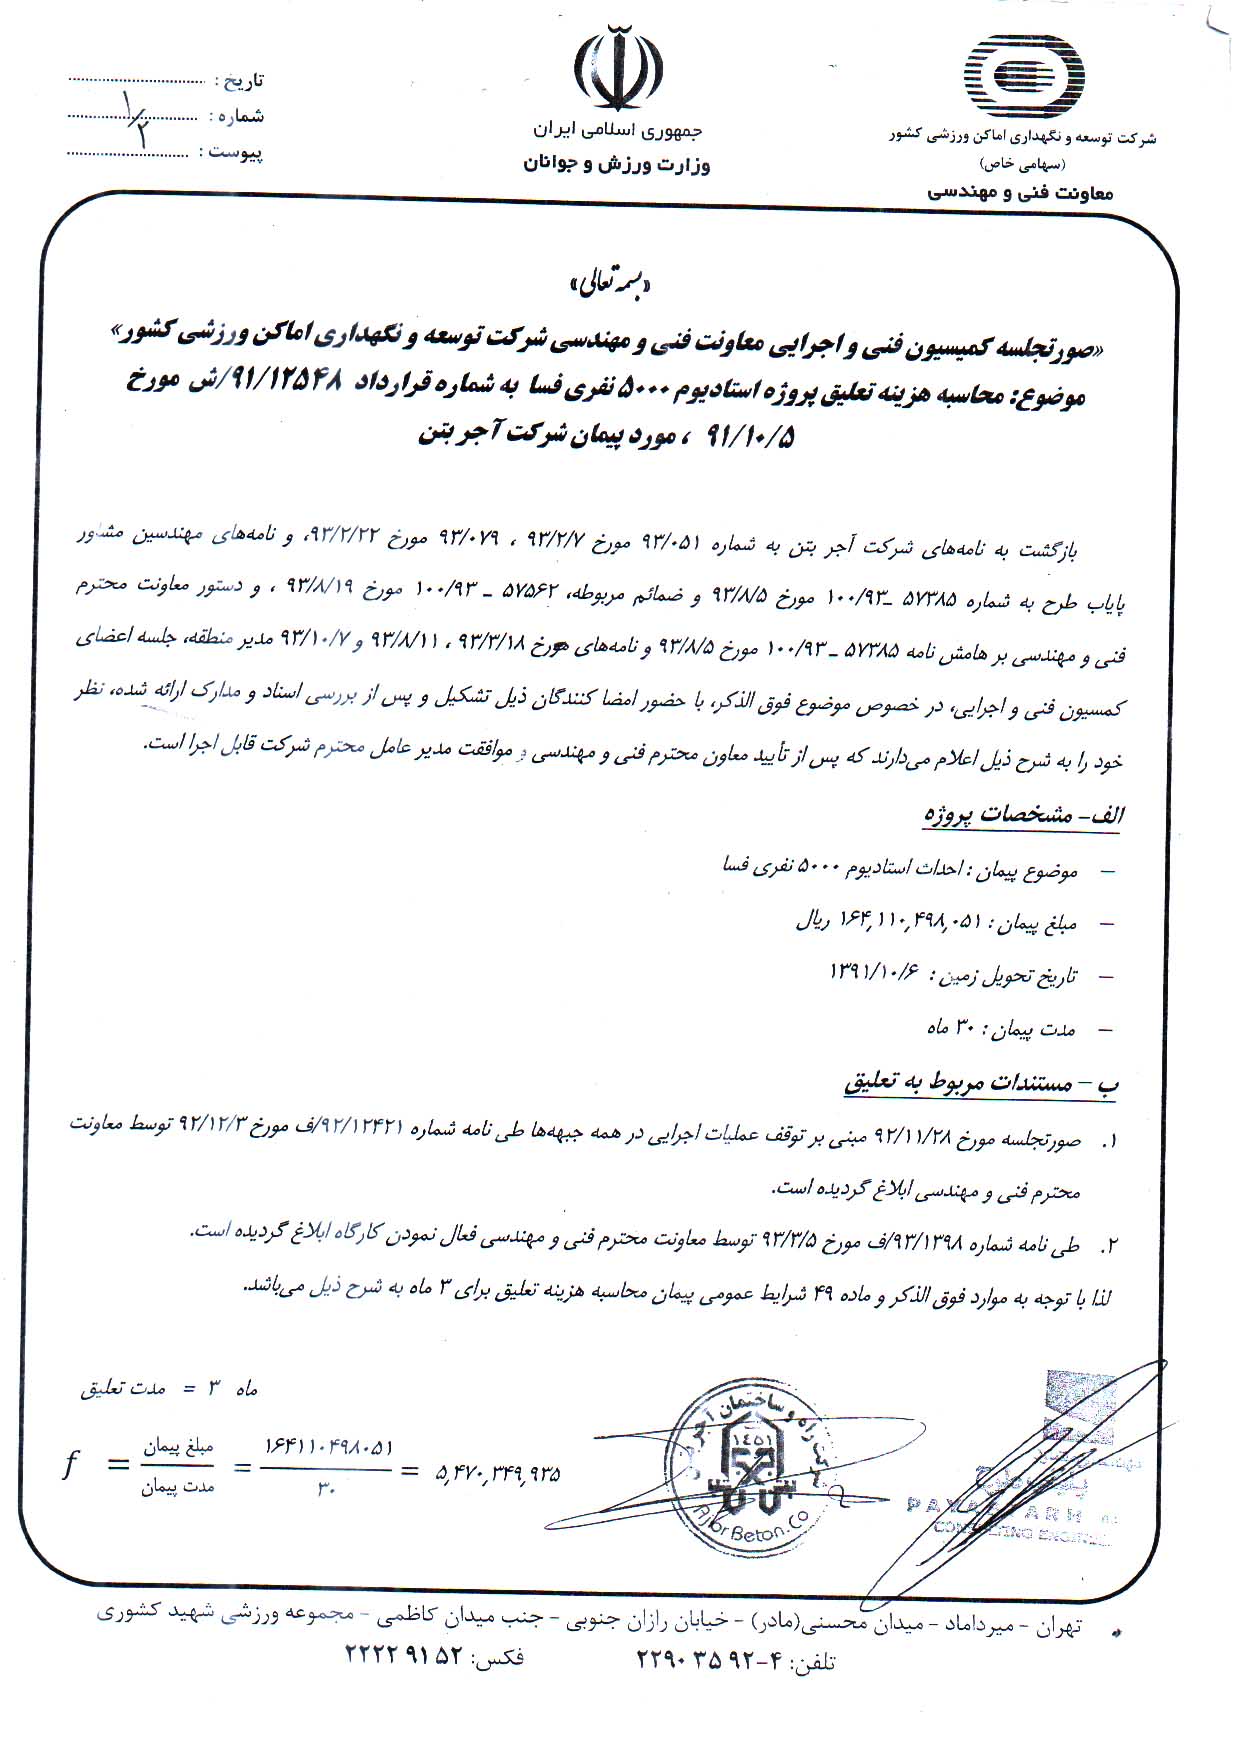 شرکت توسعه و نگهداری اماکن ورزشی کشور
(سهامی خاص)
معاونت فنی و مهندسی
جمهوری اسلامی ایران
وزارت ورزش و جوانان
تاریخ :
شماره : ۱/۲
پیوست :
«بسمه تعالی»
«صورتجلسه کمیسیون فنی و اجرایی معاونت فنی و مهندسی شرکت توسعه و نگهداری اماکن ورزشی کشور»
موضوع: محاسبه هزینه تعلیق پروژه استادیوم ۵۰۰۰ نفری فسا به شماره قرارداد ۹۱/۱۲۵۴۸/ش مورخ
۹۱/۱۰/۵ ، مورد پیمان شرکت آجر بتن
بازگشت به نامه‌های شرکت آجر بتن به شماره ۹۳/۰۵۱ مورخ ۹۳/۲/۷ ، ۹۳/۰۷۹ مورخ ۹۳/۲/۲۲، و نامه‌های مهندسین مشاور
پایاب طرح به شماره ۵۷۳۸۵ ـ۱۰۰/۹۳ مورخ ۹۳/۸/۵ و ضمائم مربوطه، ۵۷۵۶۲ ـ ۱۰۰/۹۳ مورخ ۹۳/۸/۱۹ ، و دستور معاونت محترم
فنی و مهندسی بر هامش نامه ۵۷۳۸۵ ـ ۱۰۰/۹۳ مورخ ۹۳/۸/۵ و نامه‌های مورخ ۹۳/۳/۱۸ ، ۹۳/۸/۱۱ و ۹۳/۱۰/۷ مدیر منطقه، جلسه اعضای
کمسیون فنی و اجرایی، در خصوص موضوع فوق الذکر، با حضور امضا کنندگان ذیل تشکیل و پس از بررسی اسناد و مدارک ارائه شده، نظر
خود را به شرح ذیل اعلام می‌دارند که پس از تأیید معاون محترم فنی و مهندسی و موافقت مدیر عامل محترم شرکت قابل اجرا است.
الف- مشخصات پروژه
– موضوع پیمان : احداث استادیوم ۵۰۰۰ نفری فسا
– مبلغ پیمان : ۱۶۴,۱۱۰,۴۹۸,۰۵۱ ریال
– تاریخ تحویل زمین : ۱۳۹۱/۱۰/۶
– مدت پیمان : ۳۰ ماه
ب – مستندات مربوط به تعلیق
۱. صورتجلسه مورخ ۹۲/۱۱/۲۸ مبنی بر توقف عملیات اجرایی در همه جبهه‌ها طی نامه شماره ۹۲/۱۲۴۲۱/ف مورخ ۹۲/۱۲/۳ توسط معاونت
محترم فنی و مهندسی ابلاغ گردیده است.
۲. طی نامه شماره ۹۳/۱۳۹۸/ف مورخ ۹۳/۳/۵ توسط معاونت محترم فنی و مهندسی فعال نمودن کارگاه ابلاغ گردیده است.
لذا با توجه به موارد فوق الذکر و ماده ۴۹ شرایط عمومی پیمان محاسبه هزینه تعلیق برای ۳ ماه به شرح ذیل می‌باشد.
ماه ۳ = مدت تعلیق
f = مبلغ پیمان / مدت پیمان = ۱۶۴۱۱۰۴۹۸۰۵۱ / ۳۰ = ۵,۴۷۰,۳۴۹,۹۳۵
شرکت راه و ساختمان آجر بتن
۱۴۵۱
Ajor Beton.Co
تهران – میرداماد – میدان محسنی(مادر) – خیابان رازان جنوبی – جنب میدان کاظمی – مجموعه ورزشی شهید کشوری
تلفن: ۴-۲۲۹۰۳۵۹۲ فکس: ۲۲۲۲۹۱۵۲